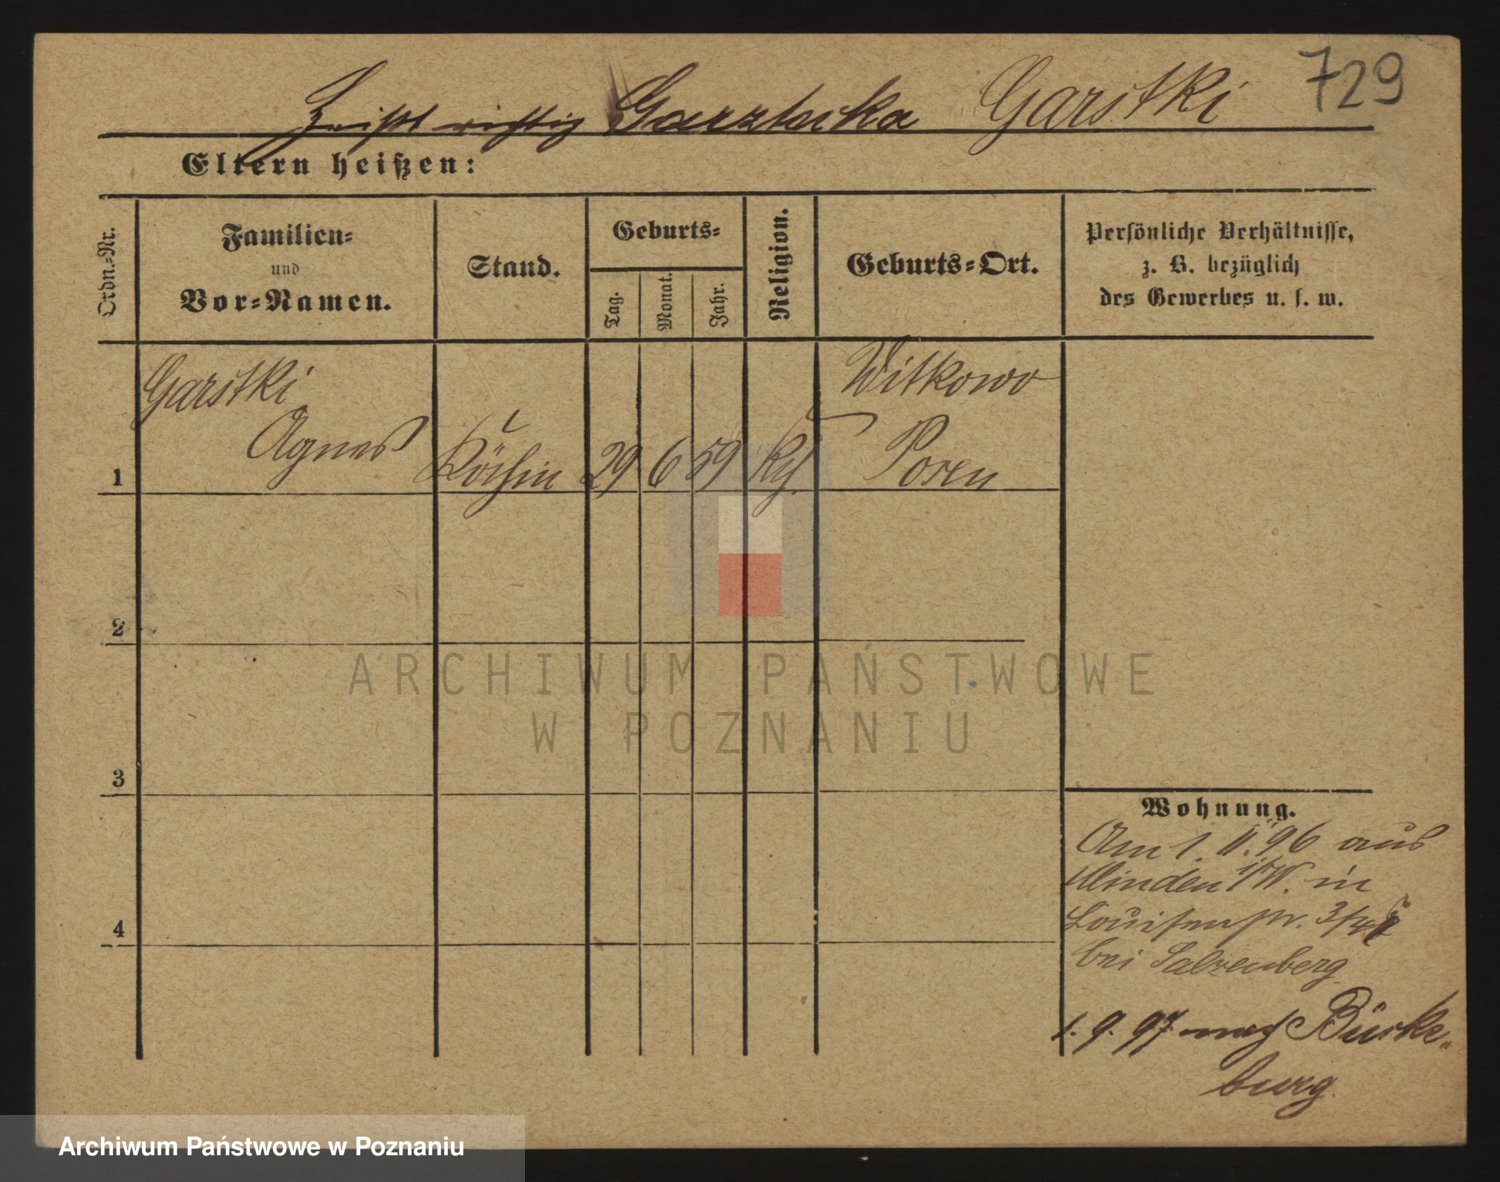 heißt richtig Garztecka Garstki 729
Eltern heißen:
Ordn.=Nr.
Familien=
und
Vor=Namen.
Stand.
Geburts=
Tag.
Monat.
Jahr.
Religion.
Geburts=Ort.
Persönliche Verhältnisse,
z. B. bezüglich
des Gewerbes u. s. w.
Garstki
Agnes
Köchin
29
6
59
Witkowo
Posen
1
2
3
4
ARCHIWUM PAŃSTWOWE
W POZNANIU
Wohnung.
Am 1. II. 96 aus
Minden i/W. in
Louisenstr. 3/4
bei Salzenberg
1. 9. 97 nach Bücke=
burg.
Archiwum Państwowe w Poznaniu